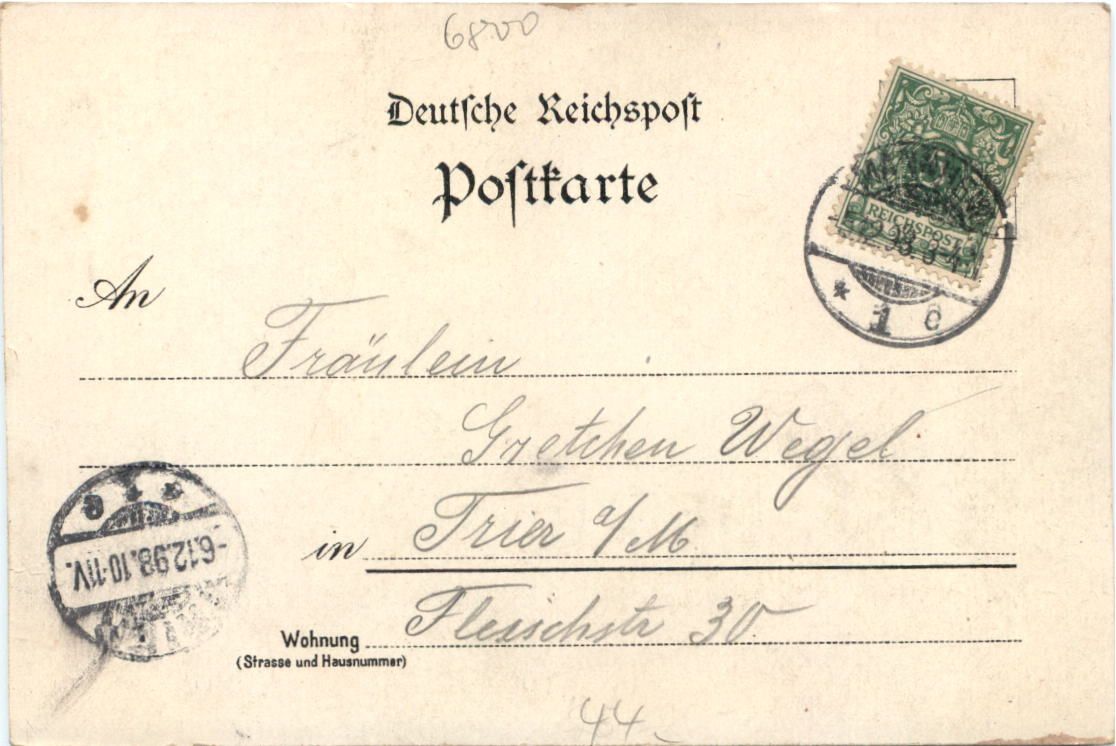 6800
Deutsche Reichspost
Postkarte
REICHSPOST
.12.98. 3-4
* 1 c
An
Fräulein
Gretchen Wegel
in Trier a/M
Fleischstr 30
Wohnung
(Strasse und Hausnummer)
-6.12.98.10-11V.
44